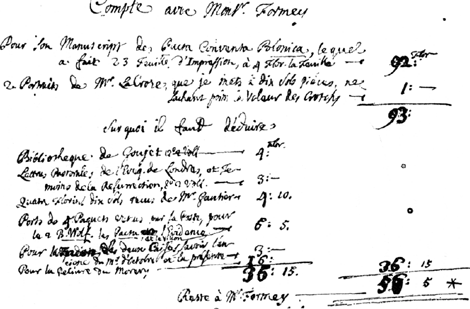 Compte avec Monsr. Formey
Pour son Manuscript des Pacta Conventa Polonica, lequel
a fait 23 Feuille d'Impression, à 4 Flor. la Feuille — 92: Flor
2 Portraits de Mr. La Croze, que je mets à dix sols pièces, ne
sachant point le Valeur des — 1: —
93:
Sur quoi il faut déduire
Bibliotheque de Goujet — 4: Flor.
Lettres Pastorales de l'Evêq. de Londres, et Te-
moins de la Resurrection, — 3: —
Quatre Florins dix sols recus de Mr. Gautier — 4: 10.
Ports de 4 Paquets venus par la poste, pour
les Pacta — 6: 5.
Pour les deux — 3: —
Pour la Reliure du Morery — 16:
36: 15. 36: 15
Reste à Mr. Formey — 56: 5 *